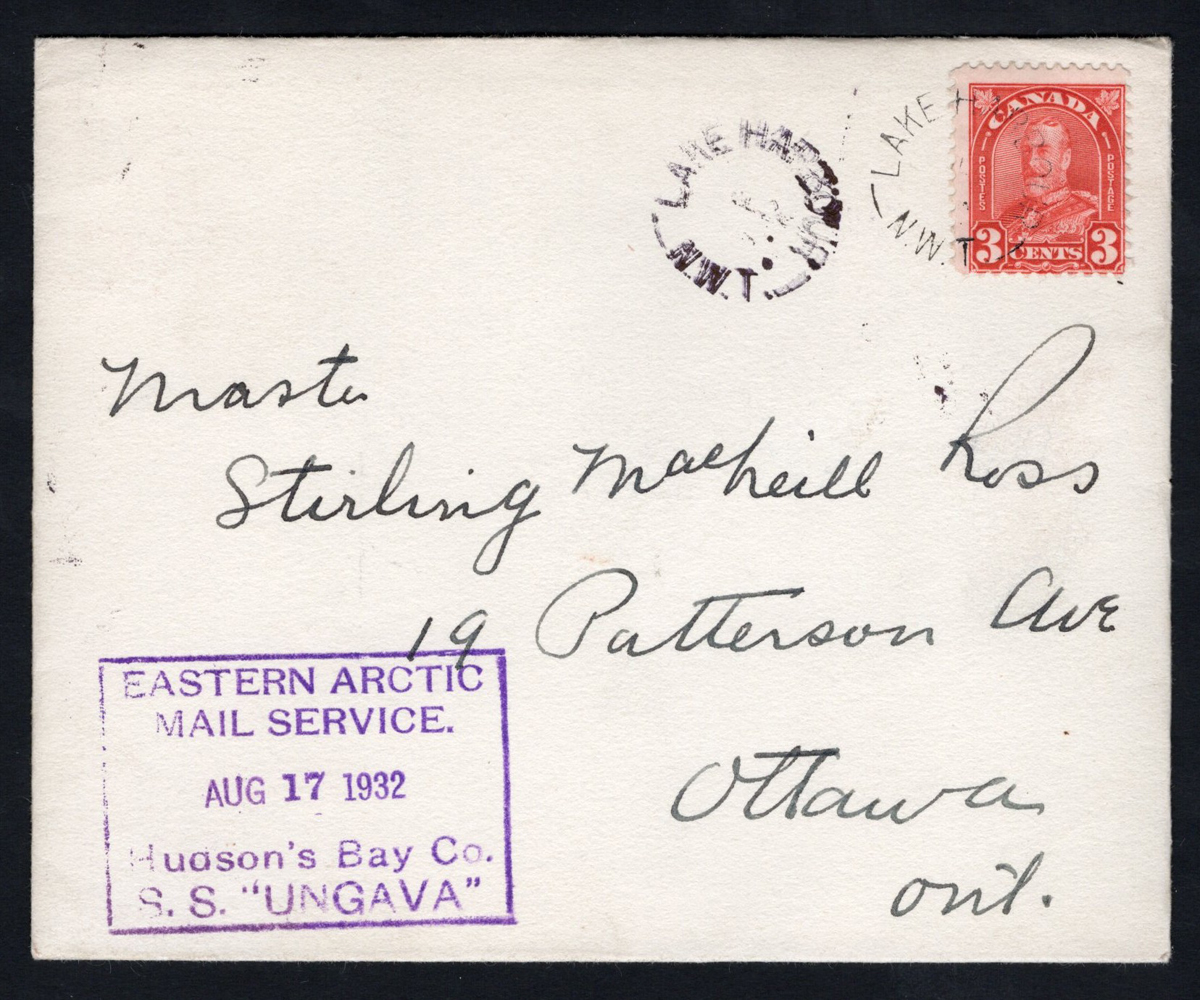 LAKE HARBOUR
N.W.T.
LAKE H
N.W.T.
CANADA
POSTES
POSTAGE
3 CENTS 3
Master
Stirling MacNeill Ross
19 Patterson Ave
Ottawa
Ont.
EASTERN ARCTIC
MAIL SERVICE.
AUG 17 1932
Hudson's Bay Co.
S. S. "UNGAVA"